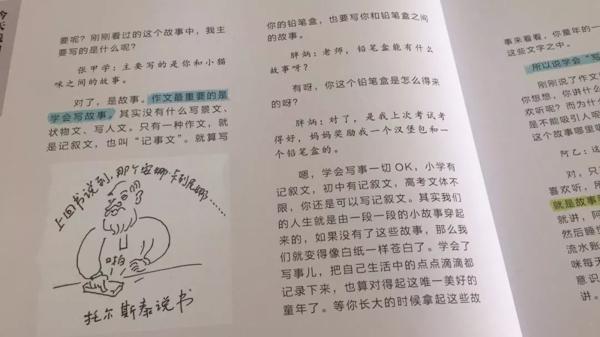 要呢？刚刚看过的这个故事中，我主
要写的是什么呢？
张甲学：主要写的是你和小猫
咪之间的故事。
对了，是故事。作文最重要的是
学会写故事。其实没有什么写景文、
状物文、写人文。只有一种作文，就
是记叙文，也叫“记事文”。就算写
上回书说到，那个安娜·卡列尼娜……
啪
托尔斯泰说书
你的铅笔盒，也要写你和铅笔盒之间
的故事。
胖炳：老师，铅笔盒能有什么
故事呀？
有呀，你这个铅笔盒是怎么得来
的呀？
胖炳：对了，是我上次考试考
得好，妈妈奖励我一个汉堡包和一
个铅笔盒的。
嗯，学会写事一切OK，小学有
记叙文，初中有记叙文，高考文体不
限，你还是可以写记叙文。其实我们
的人生就是由一段一段的小故事穿起
来的，如果没有了这些故事，那么我
们就变得像白纸一样苍白了。学会了
写事儿，把自己生活中的点点滴滴都
记录下来，也算对得起这唯一美好的
童年了。等你长大的时候拿起这些故
事来看看，你童年的一
这些文字之中。
所以说学会“写
刚刚说了作文
你想想，你讲什么
欢听呢？而为什么
是不能吸引人呢
这个故事哪里
阿乙：这
喜欢听，所
就是故事
就讲，阿
然后睡
流水账
咪每天
意识
身